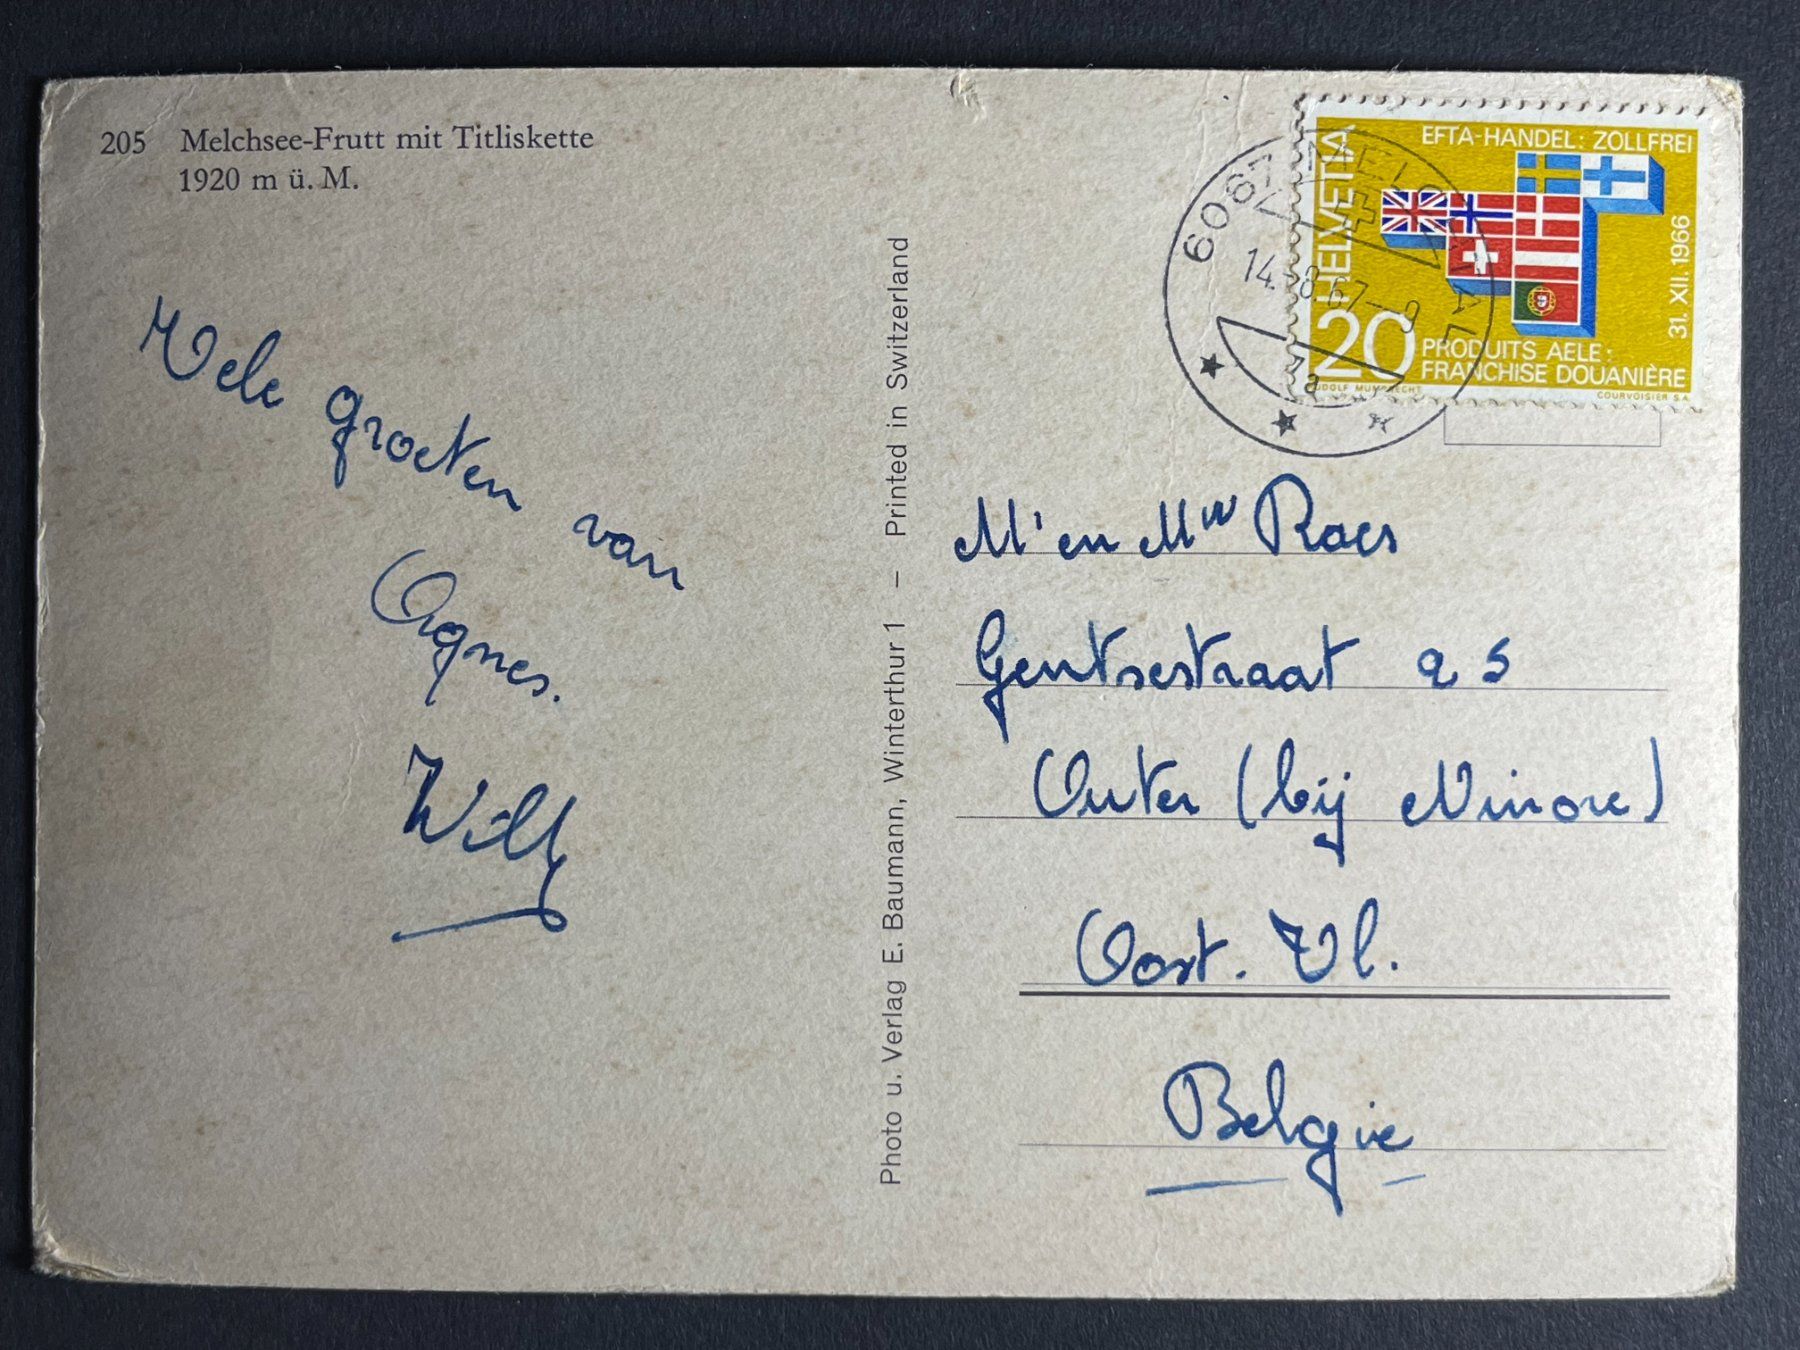 205 Melchsee-Frutt mit Titliskette
1920 m ü. M.
Vele groeten van
Agnes.
Willy
Photo u. Verlag E. Baumann, Winterthur 1 – Printed in Switzerland
6067 MELCHTAL
14.-8.67-9
7a
HELVETIA
EFTA-HANDEL: ZOLLFREI
31. XII. 1966
20
PRODUITS AELE:
FRANCHISE DOUANIÈRE
COURVOISIER S.A.
Mr en Mw Raes
Gentsestraat 25
Outer (bij Ninove)
Oost. Vl.
Belgie